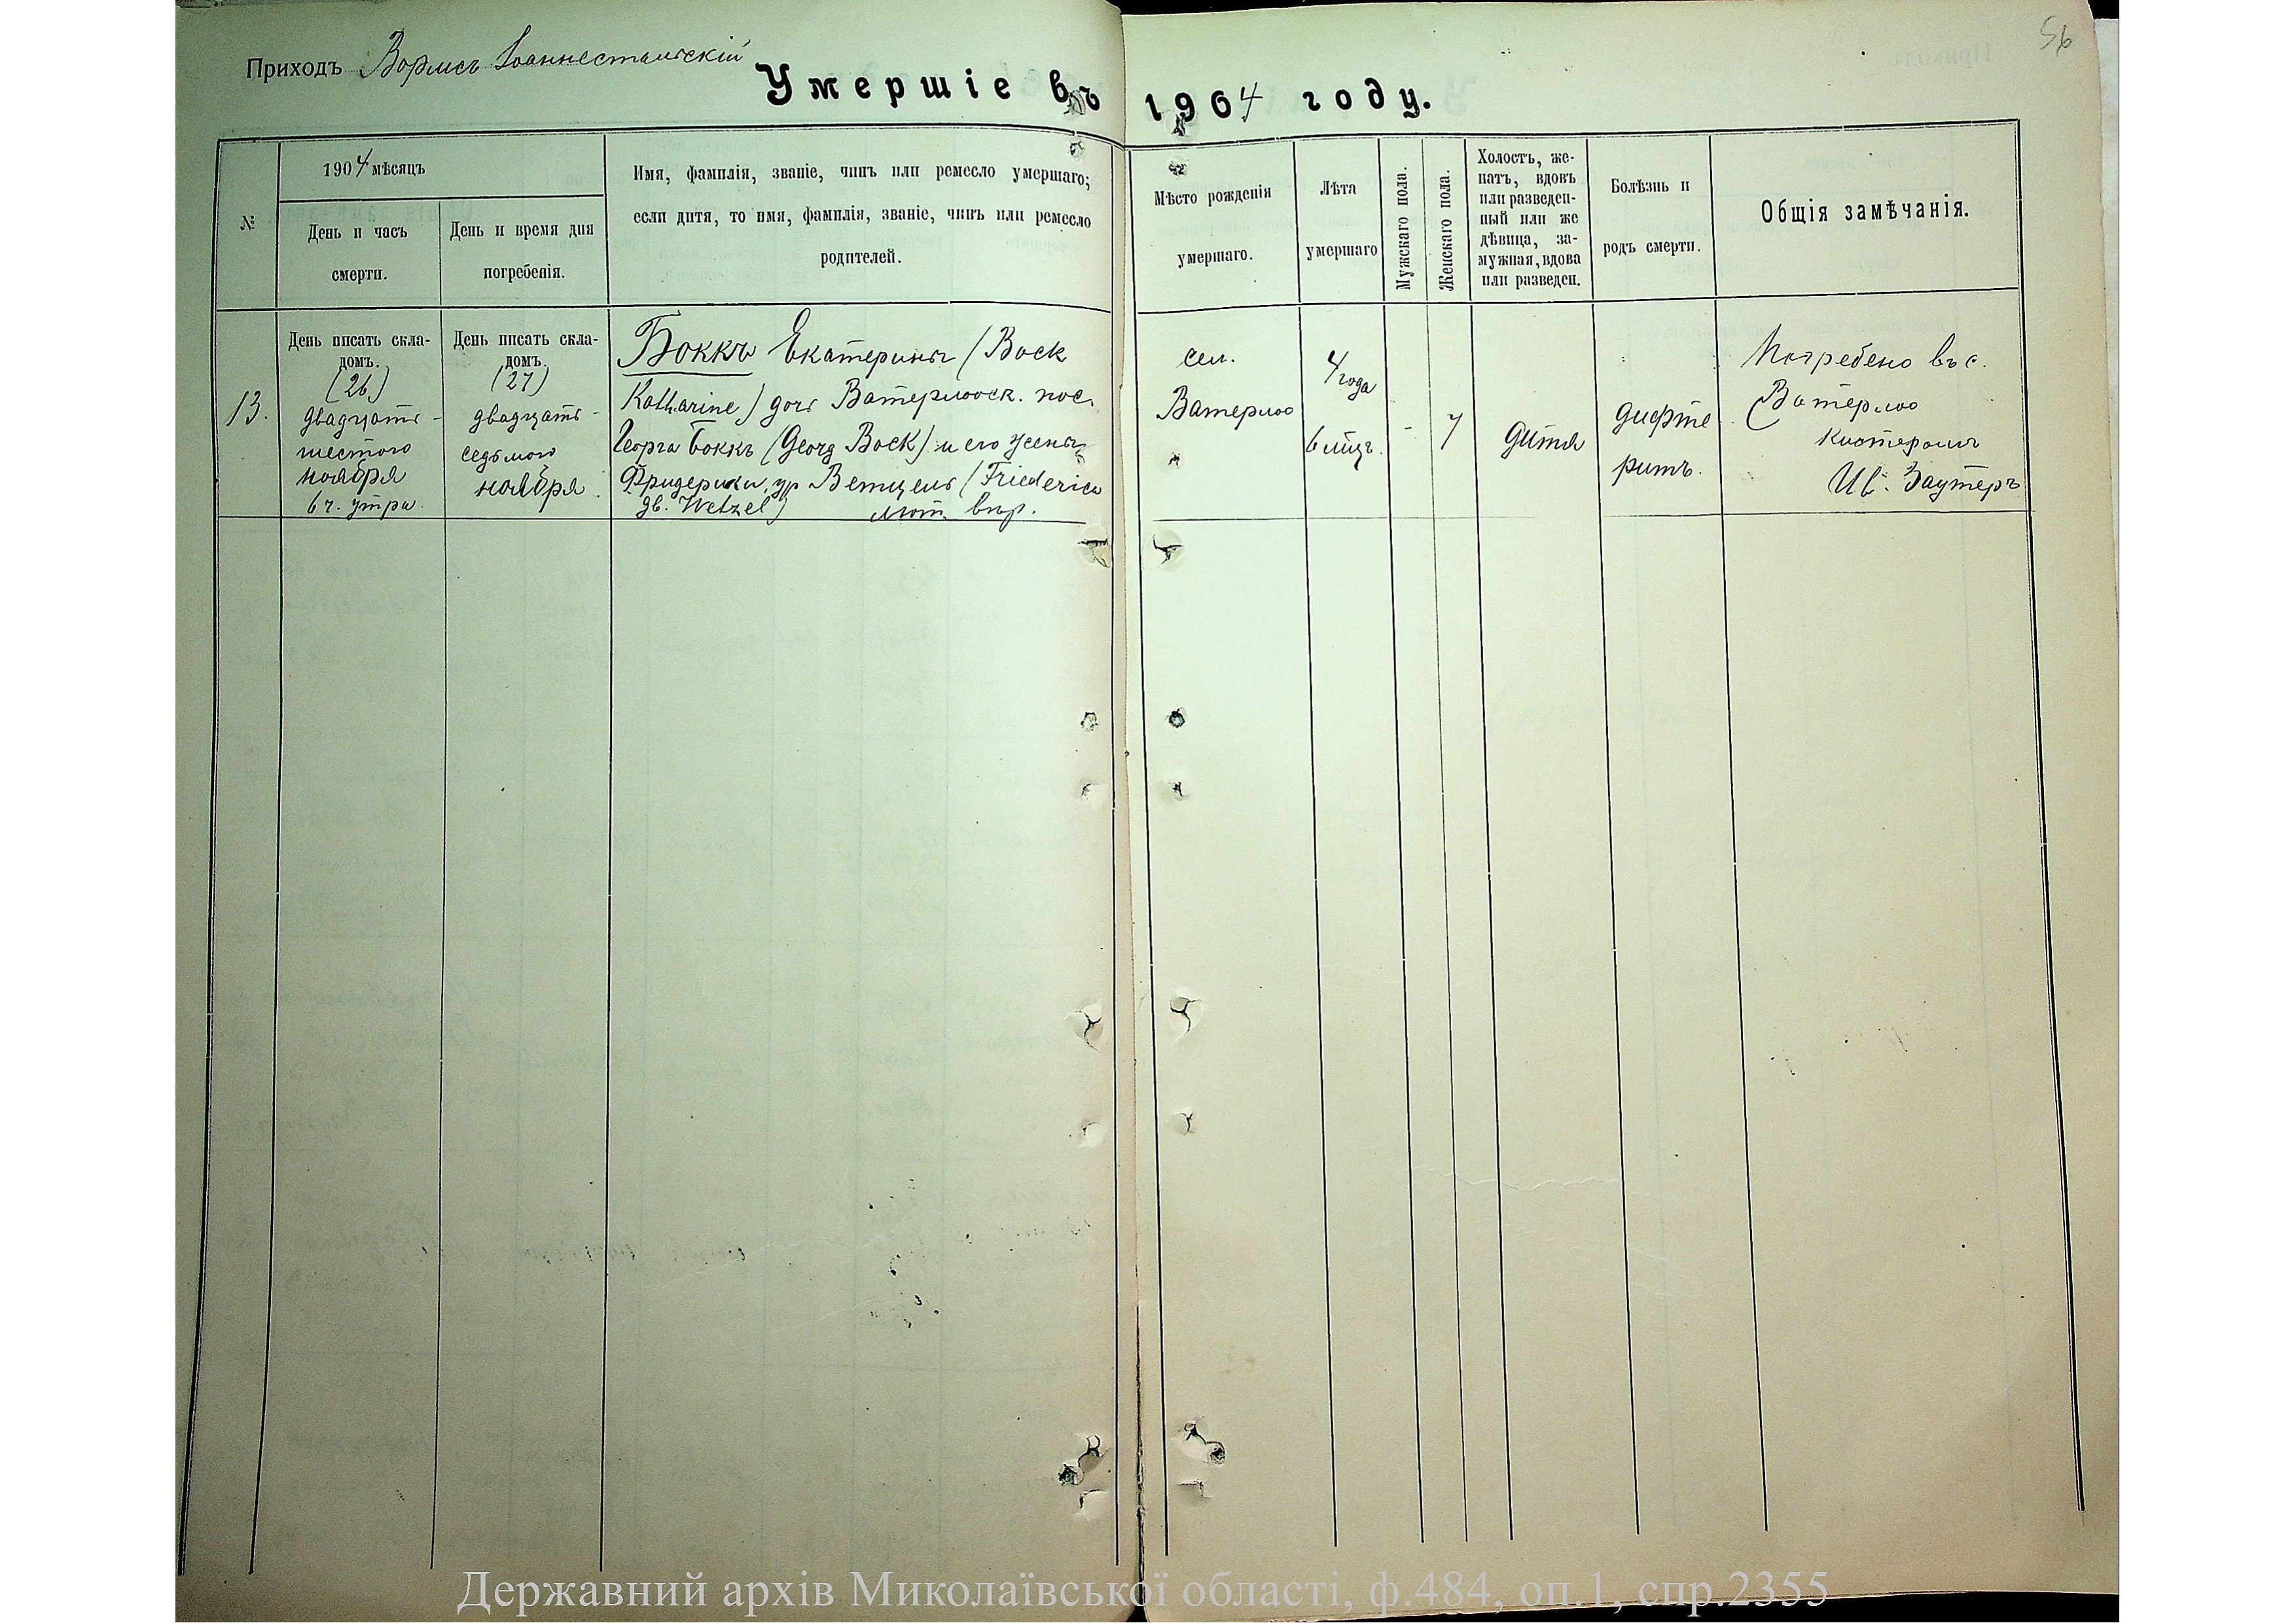 56
Приходъ Вормсъ Іоаннестальскій
Умершіе въ 1904 году.
№
1904 мѣсяцъ
День и часъ
смерти.
День и время дня
погребенія.
Имя, фамилія, званіе, чинъ или ремесло умершаго;
если дитя, то имя, фамилія, званіе, чинъ или ремесло
родителей.
Мѣсто рожденія
умершаго.
Лѣта
умершаго
Мужскаго пола.
Женскаго пола.
Холостъ, же-
натъ, вдовъ
или разведен-
ный или же
дѣвица, за-
мужная, вдова
или разведен.
Болѣзнь и
родъ смерти.
Общія замѣчанія.
13.
День писать скла-
домъ.
(26)
двадцать-
шестого
ноября
6 ч. утра.
День писать скла-
домъ.
(27)
двадцать-
седьмого
ноября.
Боккъ Екатерины (Bock
Katharine) дочь Ватерлооск. пос.
Георга Боккъ (Georg Bock) и его жены
Фридерики, ур. Ветцель (Friederica
Wetzel) лют. вѣр.
сел.
Ватерлоо
4 года
6 мцъ.
-
дитя
дифте
ритъ.
Погребено въ с.
Ватерлоо
кистеромъ
Ив. Заутеръ
Державний архів Миколаївської області, ф.484, оп.1, спр.2355